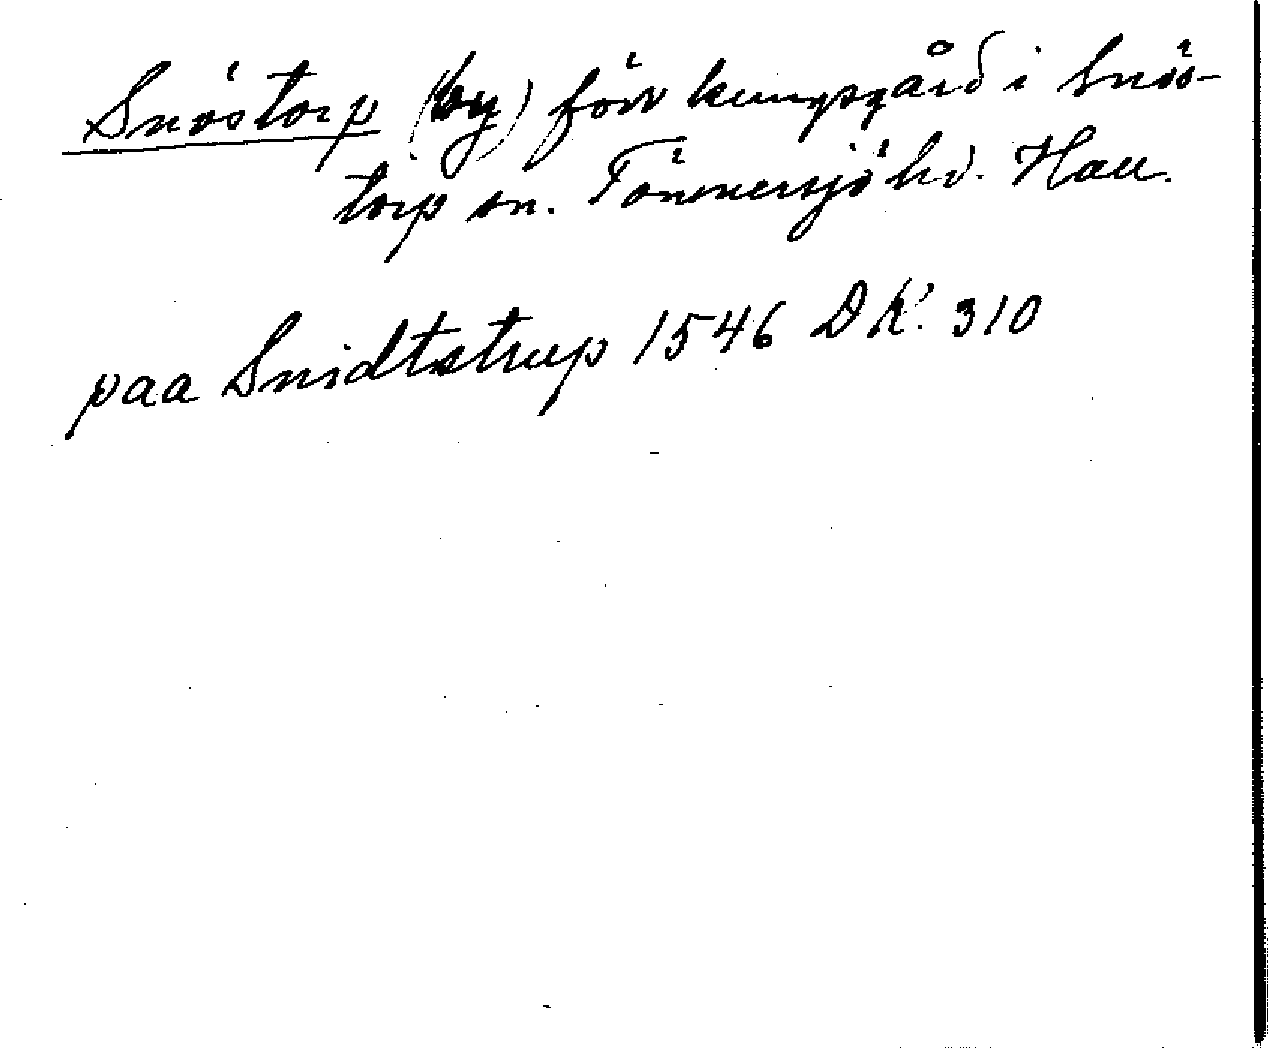 Snöstorp (by) förr kungsgård i Snös-
torp sn. Tönnersjö hd. Hall.
paa Snidtstrup 1546 DK. 310